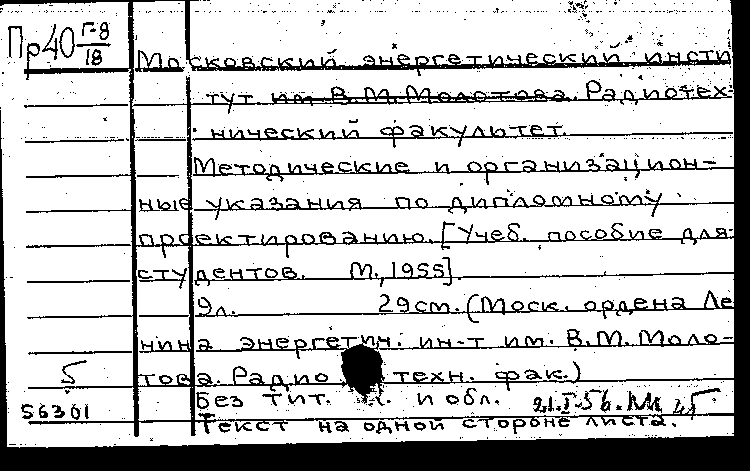 Пр40 Г-8/18
Московский энергетический инсти
тут им В.М.Молотова. Радиотех-
нический факультет.
Методические и организацион-
ные указания по дипломному
проектированию. [Учеб. пособие для
студентов. М., 1955].
9л. 29см. (Моск. ордена Ле
нина энергетич. ин-т им. В.М. Моло-
това. Радио техн. фак.)
5
Без тит. л. и обл.
56301
Текст на одной стороне листа.